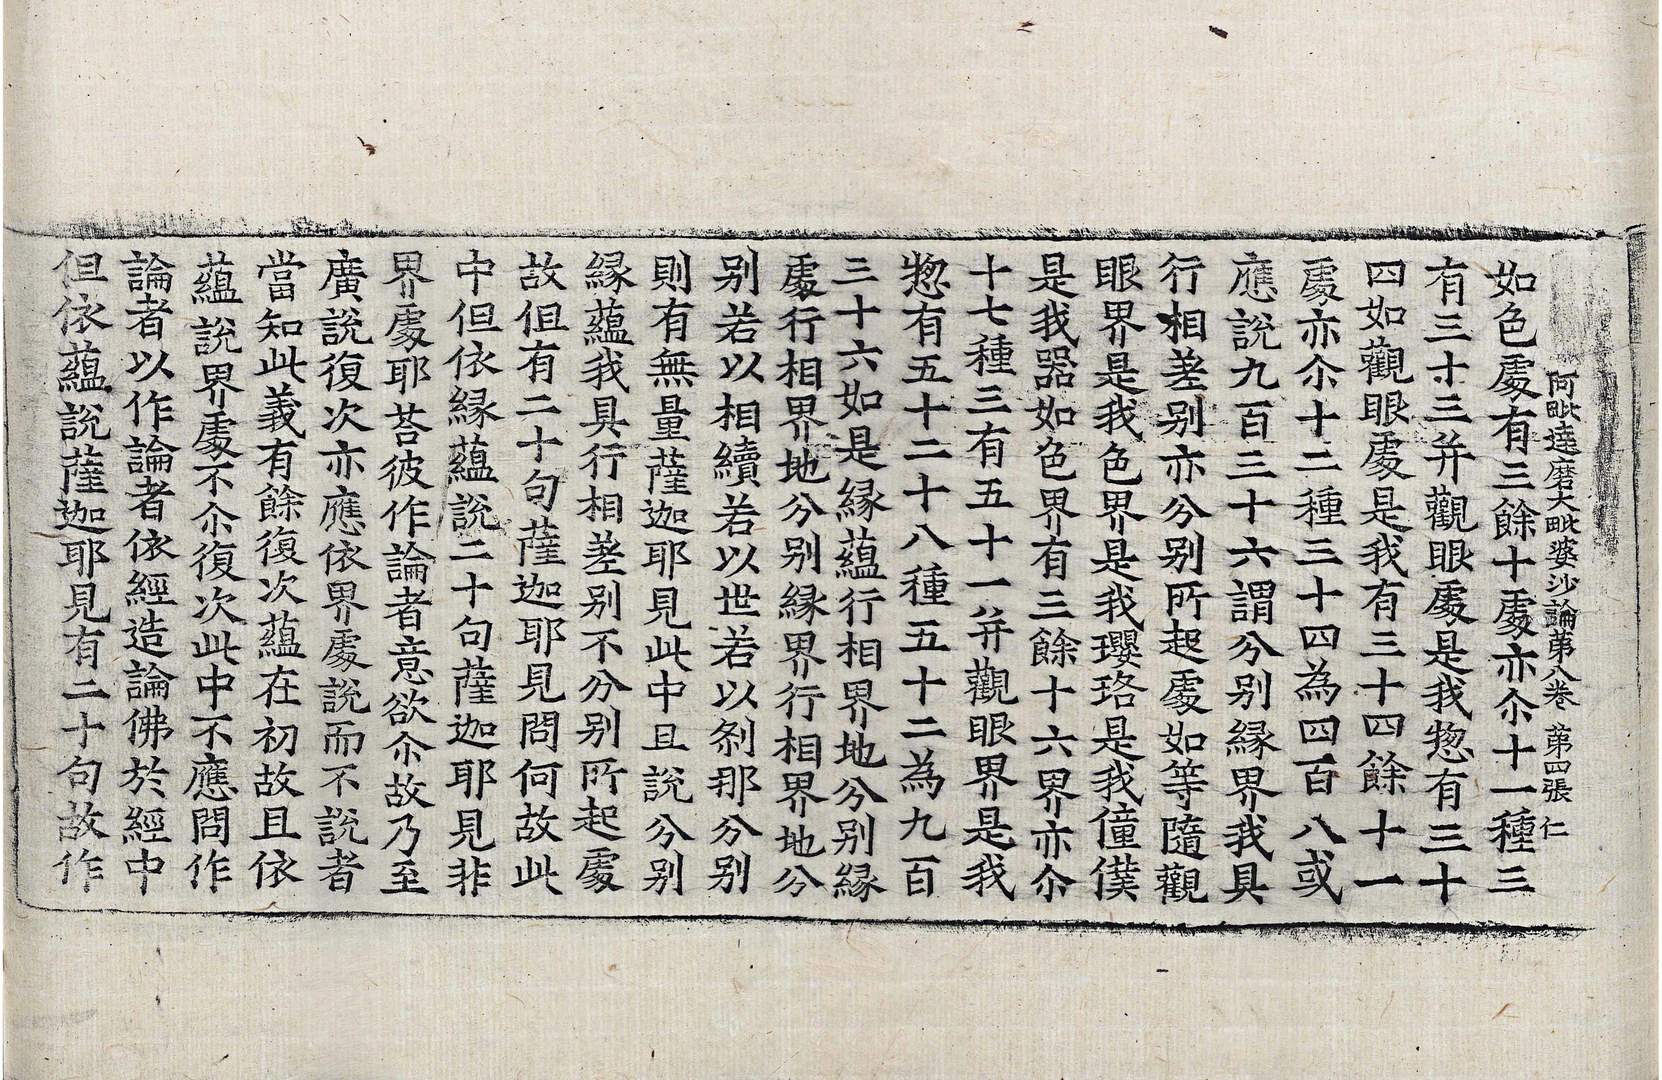 阿毗達磨大毗婆沙論第八卷 第四張 仁
如色處有三餘十處亦尒十一種三
有三十三并觀眼處是我惣有三十
四如觀眼處是我有三十四餘十一
處亦尒十二種三十四為四百八或
應說九百三十六謂分别緣界我具
行相差别亦分别所起處如等隨觀
眼界是我色界是我瓔珞是我僮僕
是我器如色界有三餘十六界亦尒
十七種三有五十一并觀眼界是我
惣有五十二十八種五十二為九百
三十六如是緣蘊行相界地分别緣
處行相界地分别緣界行相界地分
别若以相續若以世若以刹那分别
則有無量薩迦耶見此中且說分别
緣蘊我具行相差别不分别所起處
故但有二十句薩迦耶見問何故此
中但依緣蘊說二十句薩迦耶見非
界處耶荅彼作論者意欲尒故乃至
廣說復次亦應依界處說而不說者
當知此義有餘復次蘊在初故且依
蘊說界處不尒復次此中不應問作
論者以作論者依經造論佛於經中
但依蘊說薩迦耶見有二十句故作